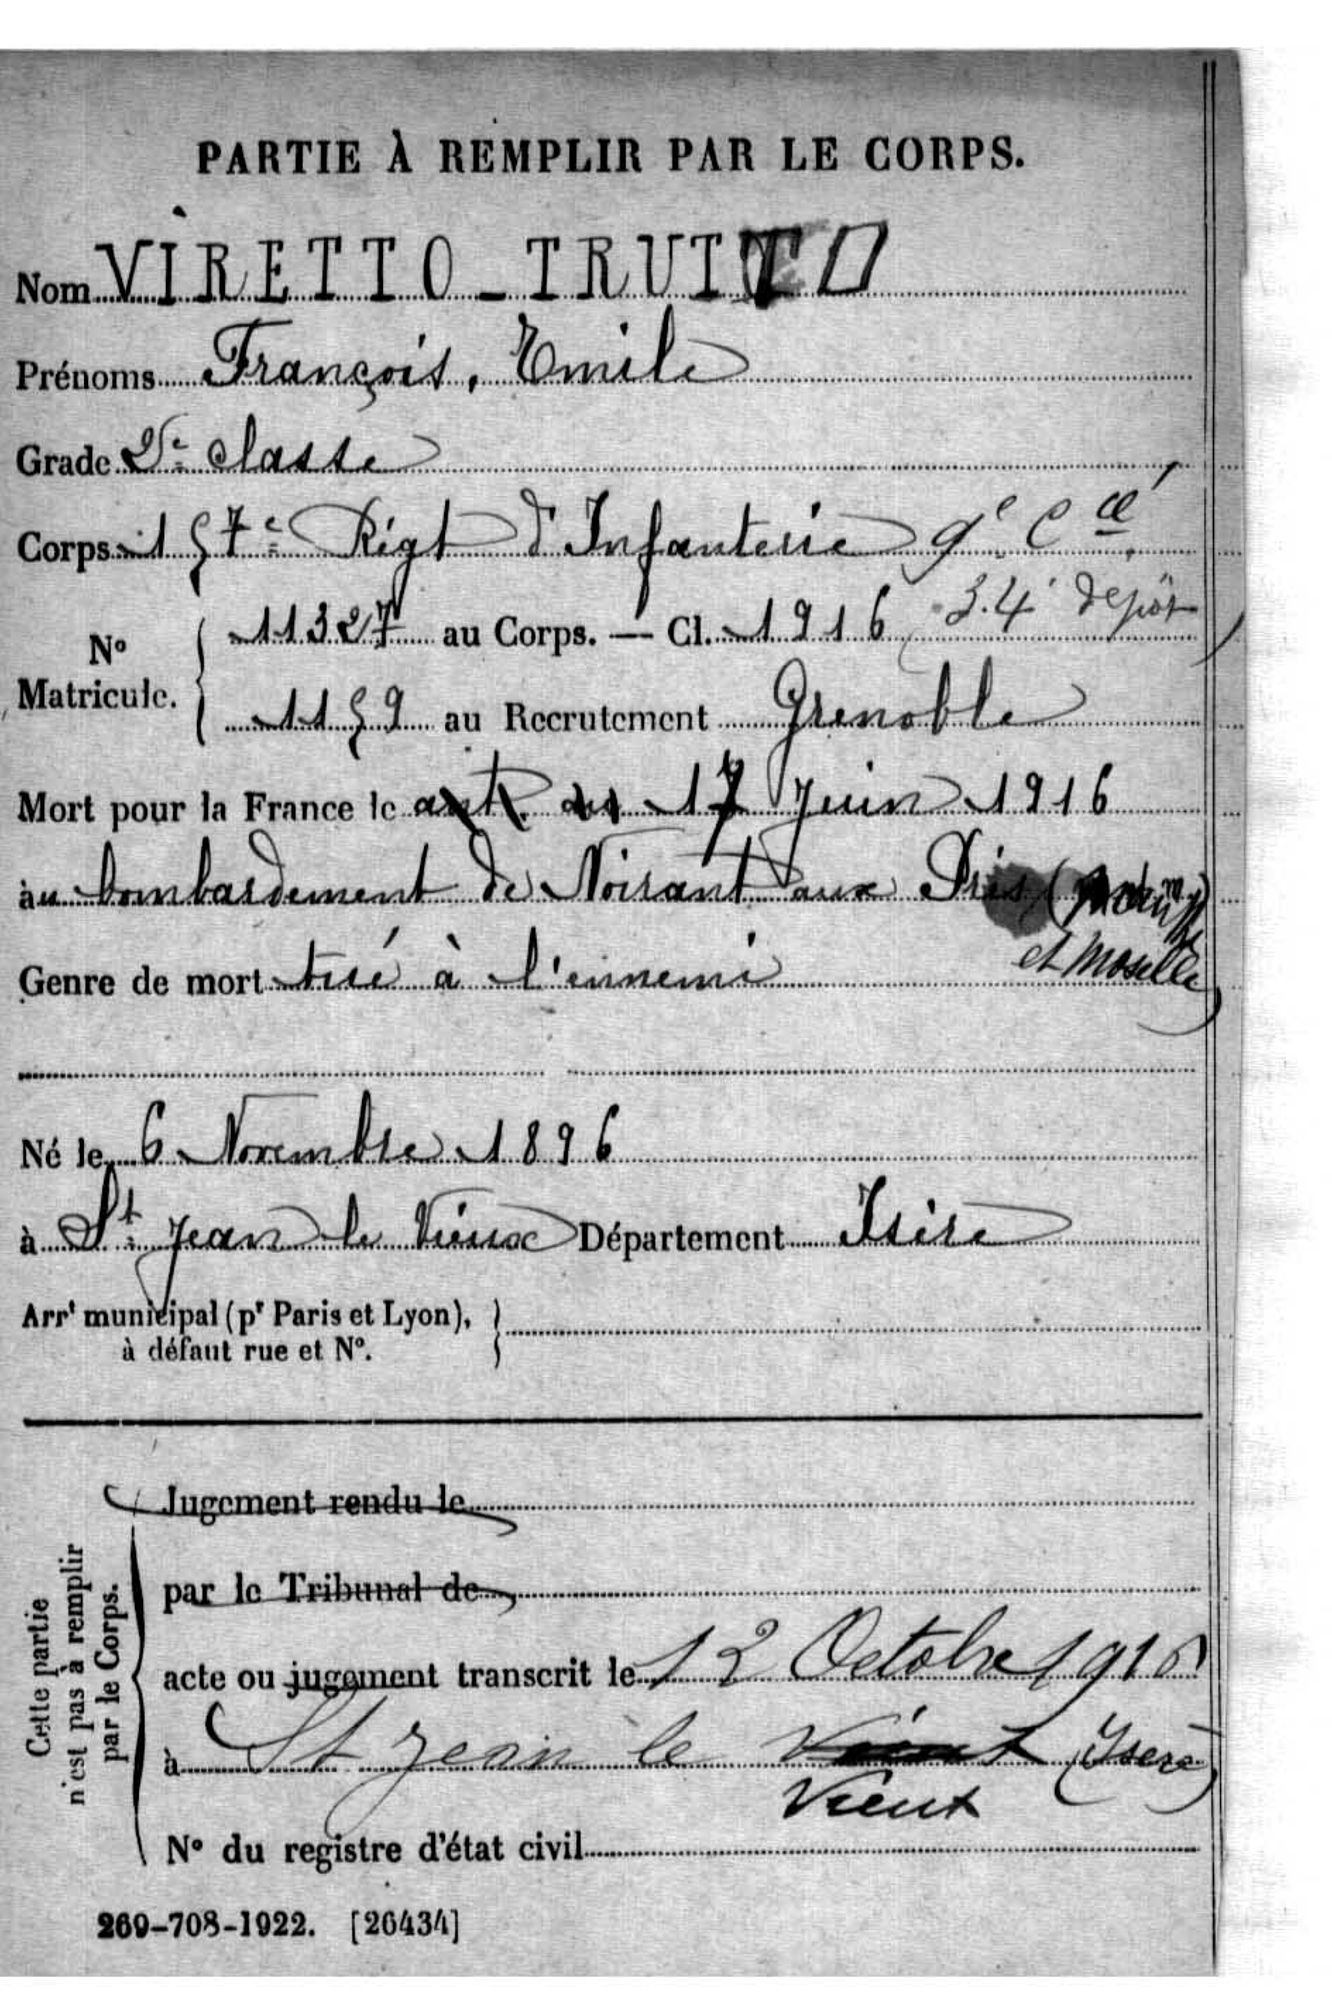 PARTIE À REMPLIR PAR LE CORPS.
Nom VIRETTO_TRUITTO
Prénoms François, Emile
Grade 2e classe
Corps 157e Régt d'Infanterie 9e Cie
No Matricule. 11327 au Corps. — Cl. 1916 34 dépôt
1159 au Recrutement Grenoble
Mort pour la France le ant. du 17 Juin 1916
au bombardement de Noirant aux Prés (
et Moselle)
Genre de mort tué à l'ennemi
Né le 6 Novembre 1896
à St Jean le Vieux Département Isère
Arrt municipal (pr Paris et Lyon),
à défaut rue et No.
Cette partie n'est pas à remplir par le Corps.
Jugement rendu le
par le Tribunal de
acte ou jugement transcrit le 12 Octobre 1916
à St Jean le (Isère)
Vieux
No du registre d'état civil
269-708-1922. [26434]